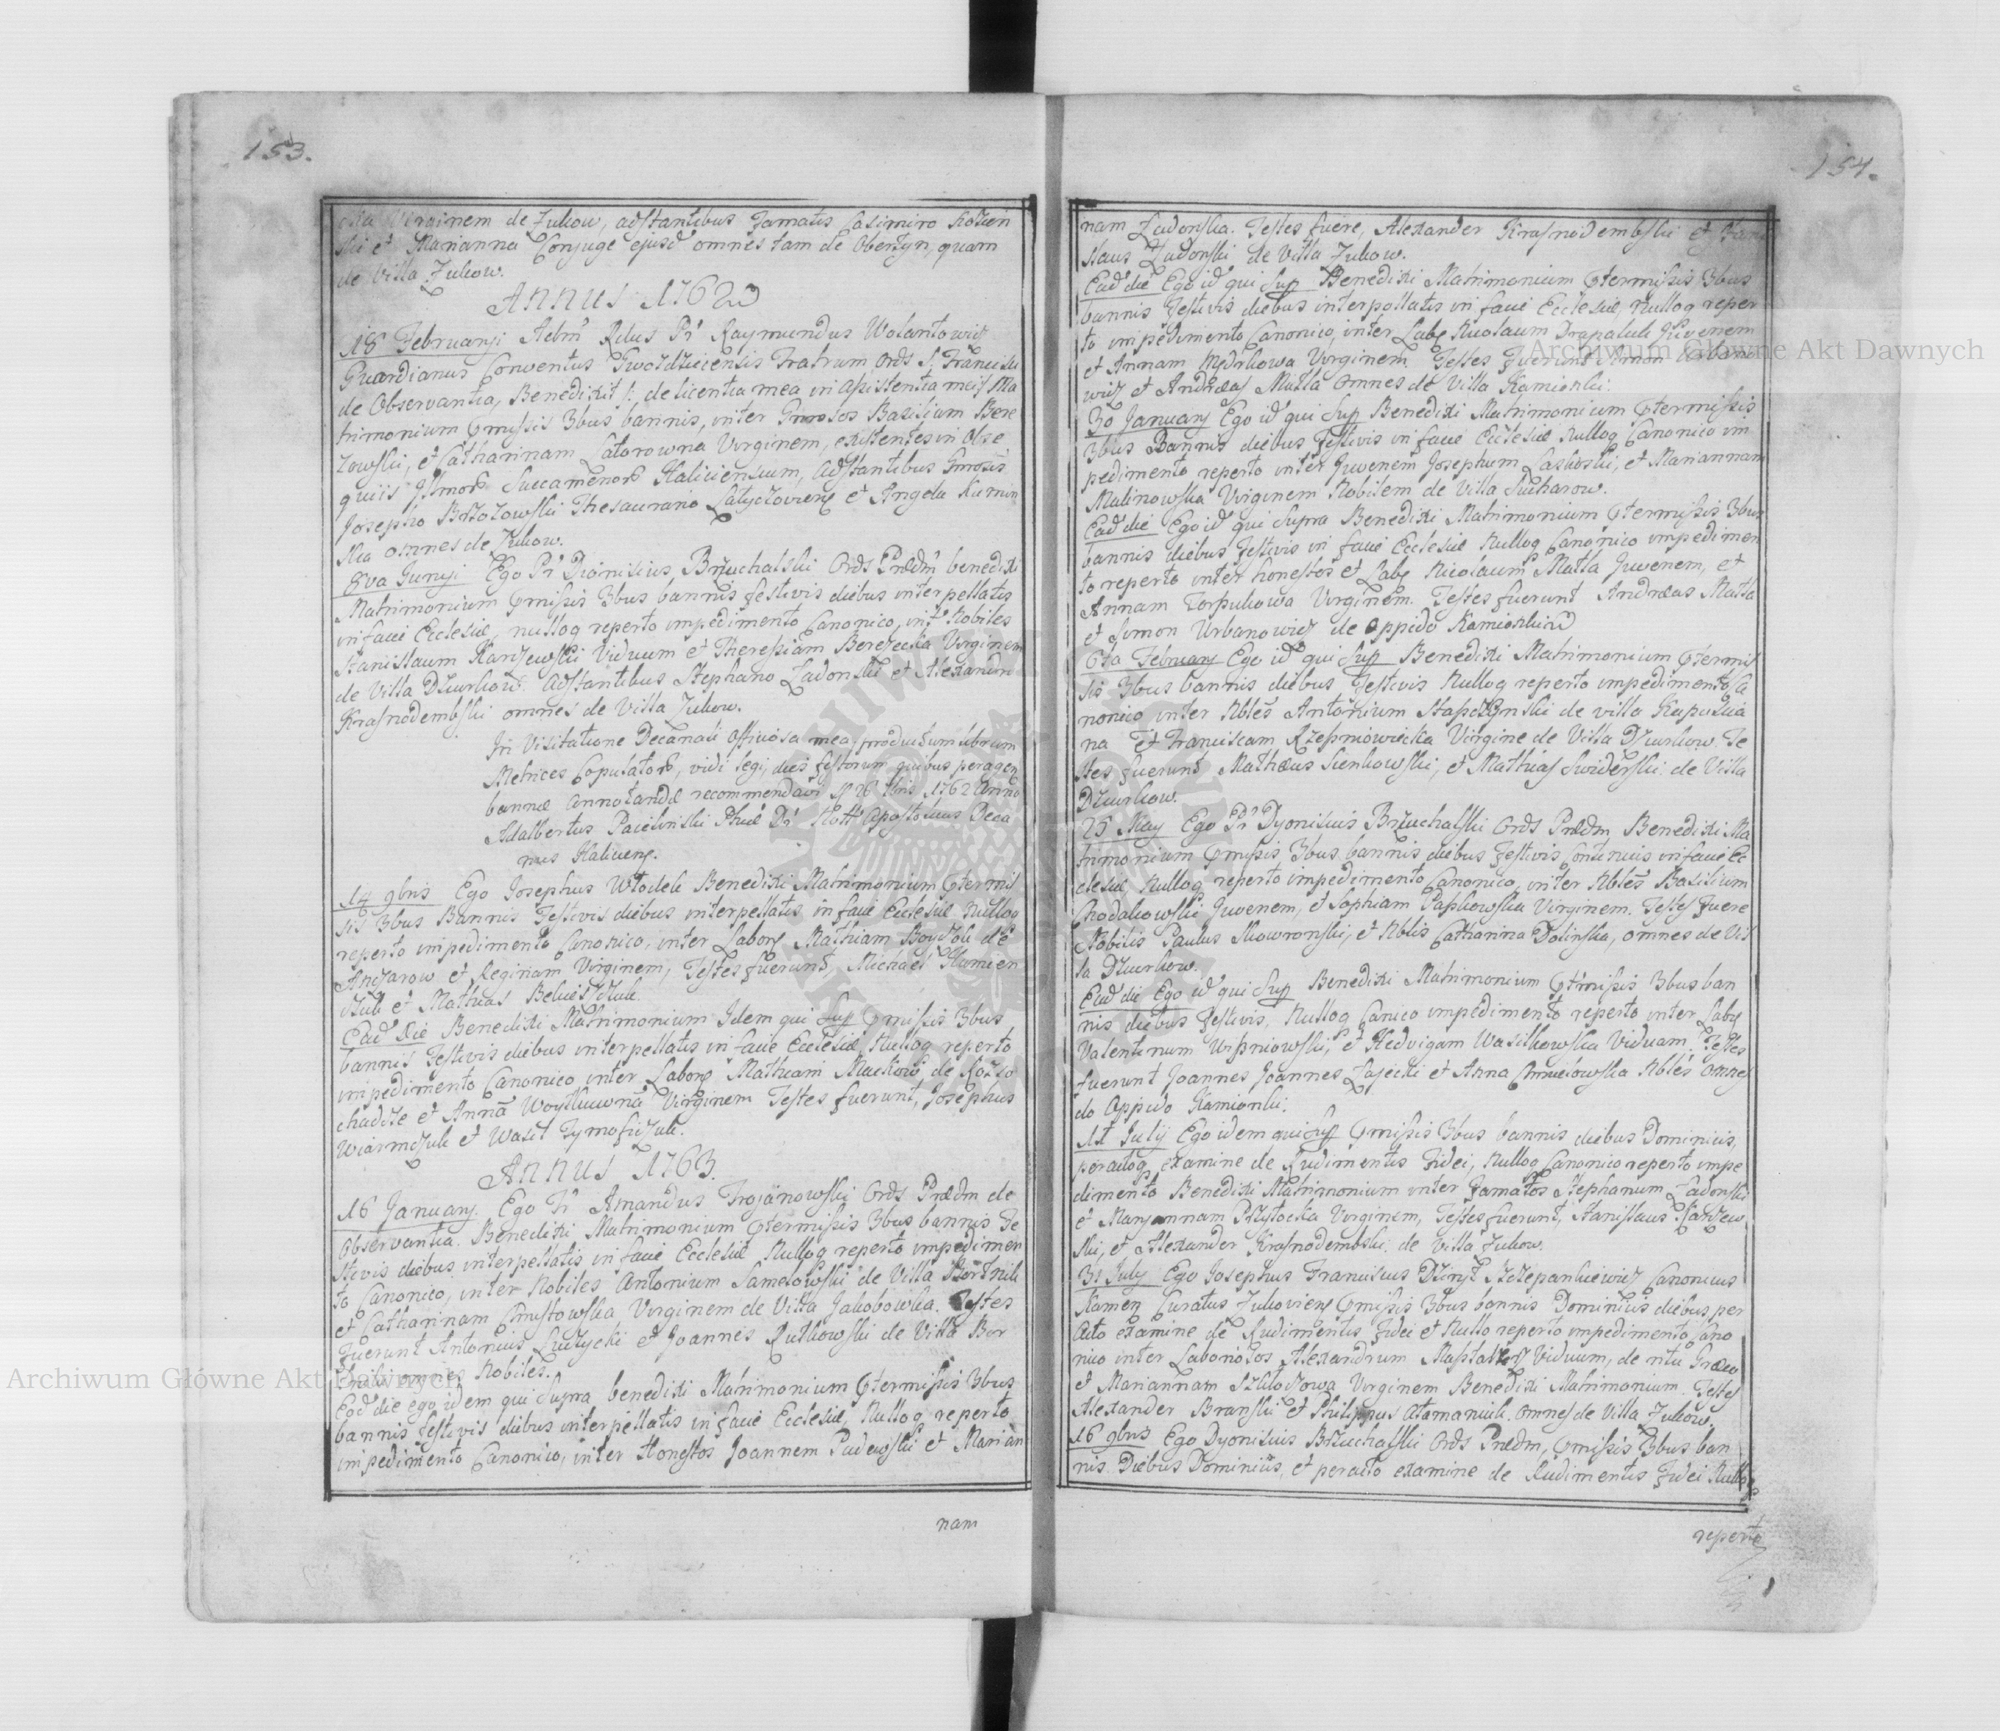 153.
Virginem de Zukow, adstantibus Famatis Casimiro
ski et Marianna Conjuge ejusd omnes tam de Obertyn, quam
de Villa Zukow.
Annus 1762
18 Februarij Adm Rdus Pr Raymundus Wolantowicz
Guardianus Conventus Gwozdziciensis Fratrum Ords S Francisci
de Observantia, Benedixit /: de licentia mea in assistentia mei :/ Ma
trimonium pmissis 3bus bannis, inter Gnosos Basilium Bere
zowski, et Catharinam Latorowna Virginem, existentes in obse
quiis Succamenor Haliciensium, adstantibus Gnosis
Josepho Brzozowski Thesaurario Latyczoviens et Angela
ska omnes de Zukow.
8va Junij Ego Pr Dionisius Brzuchalski Ords Prædm benedixi
Matrimonium pmissis 3bus bannis festivis diebus interpellatis
in facie Ecclesiæ, nulloq reperto impedimento Canonico, int Nobiles
Stanislaum Kardzewski Viduum et Theressiam Berezecka Virginem
de Villa Dzurkow. adstantibus Stephano Zadonski et Alexandro
Krasnodembski omnes de Villa Zukow.
In Visitatione Decanali Officiosa mea productum librum
Metrices Copulator, vidi legi, dies festorum quibus peragen
bannæ annotandæ recommendavi 1762 Anno
Adalbertus Pacielinski Phiæ Dr Nott Apostolicus Deca
nus Haliciens.
14 9bris Ego Josephus Wlodek Benedixi Matrimonium ptermis
sis 3bus Bannis Festivis diebus interpellatis in facie Ecclesiæ Nulloq
reperto impedimento Canonico, inter Labors Mathiam Boyczuk de
et Reginam Virginem, Testes fuerunt, Michael
czuk et Mathias
Ead Die Benedixi Matrimonium Idem qui Sup pmissis 3bus
bannis Festivis diebus interpellatis in facie Ecclesiæ Nulloq reperto
impedimento Canonico inter Labors Mathiam Mackow de
et Anna Woytkuwna Virginem Testes fuerunt, Josephus
Wiarmczuk et Wasil Tymoficzuk.
Annus 1763.
16 January. Ego Fr Amandus Trojanowski Ords Prædm de
Observantia. Benedixi Matrimonium ptermissis 3bus bannis Fe
stivis diebus interpellatis in facie Ecclesiæ Nulloq reperto impedimen
to Canonico, inter Nobiles Antonium Samolowski de Villa Bortnik
et Catharinam Chrustowska Virginem de Villa Jakobowka. Testes
Fuerunt Antonius Luczycki et Joannes Rutkowski de Villa Bor
tniki omnes Nobiles.
Eod die ego idem qui Supra benedixi Matrimonium ptermissis 3bus
bannis festivis diebus interpellatis in facie Ecclesiæ, Nulloq reperto
impedimento Canonico, inter Honestos Joannem et Marian
nam
154.
nam Zadonska. Testes fuere, Alexander Krasnodembski et
slaus Zadonski de Villa Zukow.
Ead die Ego id qui Sup Benedixi Matrimonium ptermissis 3bus
bannis Festivis diebus interpollatis in facie Ecclesiæ, Nulloq reper
to impedimento Canonico, inter Labs Nicolaum Drapaluk Juvenem
et Annam Virginem. Testes Fuerunt Simon Urbano
wicz et Andreas Matla omnes de Villa Kamionki.
30 January Ego id qui Sup Benedixi Matrimonium ptermissis
3bus Bannis diebus Festivis in facie Ecclesiæ Nulloq Canonico im
pedimento reperto inter Juvenem Josephum Laskoski, et Mariannam
Malinowska Virginem Nobilem de Villa Sucharow.
Ead die Ego id qui Supra Benedixi Matrimonium ptermissis 3bus
bannis diebus Festivis in facie Ecclesiæ Nulloq Canonico impedimen
to reperto inter honestos et Labs Nicolaum Matla Juvenem, et
Annam Torpukowa Virginem. Testes fuerunt Andræas Matla
et Simon Urbanowicz de oppido Kamionkiui
6ta February Ego id qui Sup Benedixi Matrimonium ptermis
sis 3bus bannis diebus Festivis Nulloq reperto impedimento Ca
nonico inter Nbles Antonium de villa Kapuscia
na et Franciscam Rzepniowiecka Virgine de Villa Dzurkow. Te
stes fuerunt Mathæus Sienkowski, et Mathias Swiderski de Villa
Dzurkow.
25 May Ego Pr Dyonisius Brzuchalski Ords Prædm Benedixi Ma
trimonium pmissis 3bus bannis diebus Festivis Continuis in facie Ec
clesiæ, Nulloq reperto impedimento Canonico, inter Nbles Basilium
Chodakowski Juvenem, et Sophiam Papkowska Virginem. Testes fuere
Nobilis Paulus Skowronski, et Nblis Catharina Dolinska, omnes de Vil
la Dzurkow.
Ead die Ego id qui Sup Benedixi Matrimonium ptmissis 3bus ban
nis diebus Festivis, Nulloq Canico impedimento reperto inter Labs
Valentinum Wisniowski, et Hedvigam Wasilkowska Viduam, Testes
fuerunt Joannes Joannes Zajecki et Anna Chmielowska Nbles omnes
de Oppido Kamionki.
11 July Ego idem qui sup pmissis 3bus bannis diebus Dominicis,
peractoq examine de Rudimentis Fidei, Nulloq Canonico reperto impe
dimento Benedixi Matrimonium inter Famatos Stephanum Zadonski
et Maryannam Przylocka Virginem, Testes fuerunt, Stanislaus Kardzew
ski, et Alexander Krasnodembski de Villa Zukow.
31 July Ego Josephus Franciscus Szczepankiewicz Canonicus
Kamen Curatus Zukoviens pmissis 3bus bannis Dominicis diebus per
acto examine de Rudimentis Fidei et Nullo reperto impedimento Cano
nico inter Laboriosos Alexandrum Viduum, de ritu Græco
et Mariannam Virginem Benedixi Matrimonium. Testes
Alexander Branski et Philippus Atamaniuk. omnes de Villa Zukow.
16 9bris Ego Dyonisius Brzuchalski Ords Prædm, pmissis 3bus ban
nis Diebus Dominicis, et peracto examine de Rudimentis Fidei Nullo
reperto
Archiwum Główne Akt Dawnych
Archiwum Główne Akt Dawnych